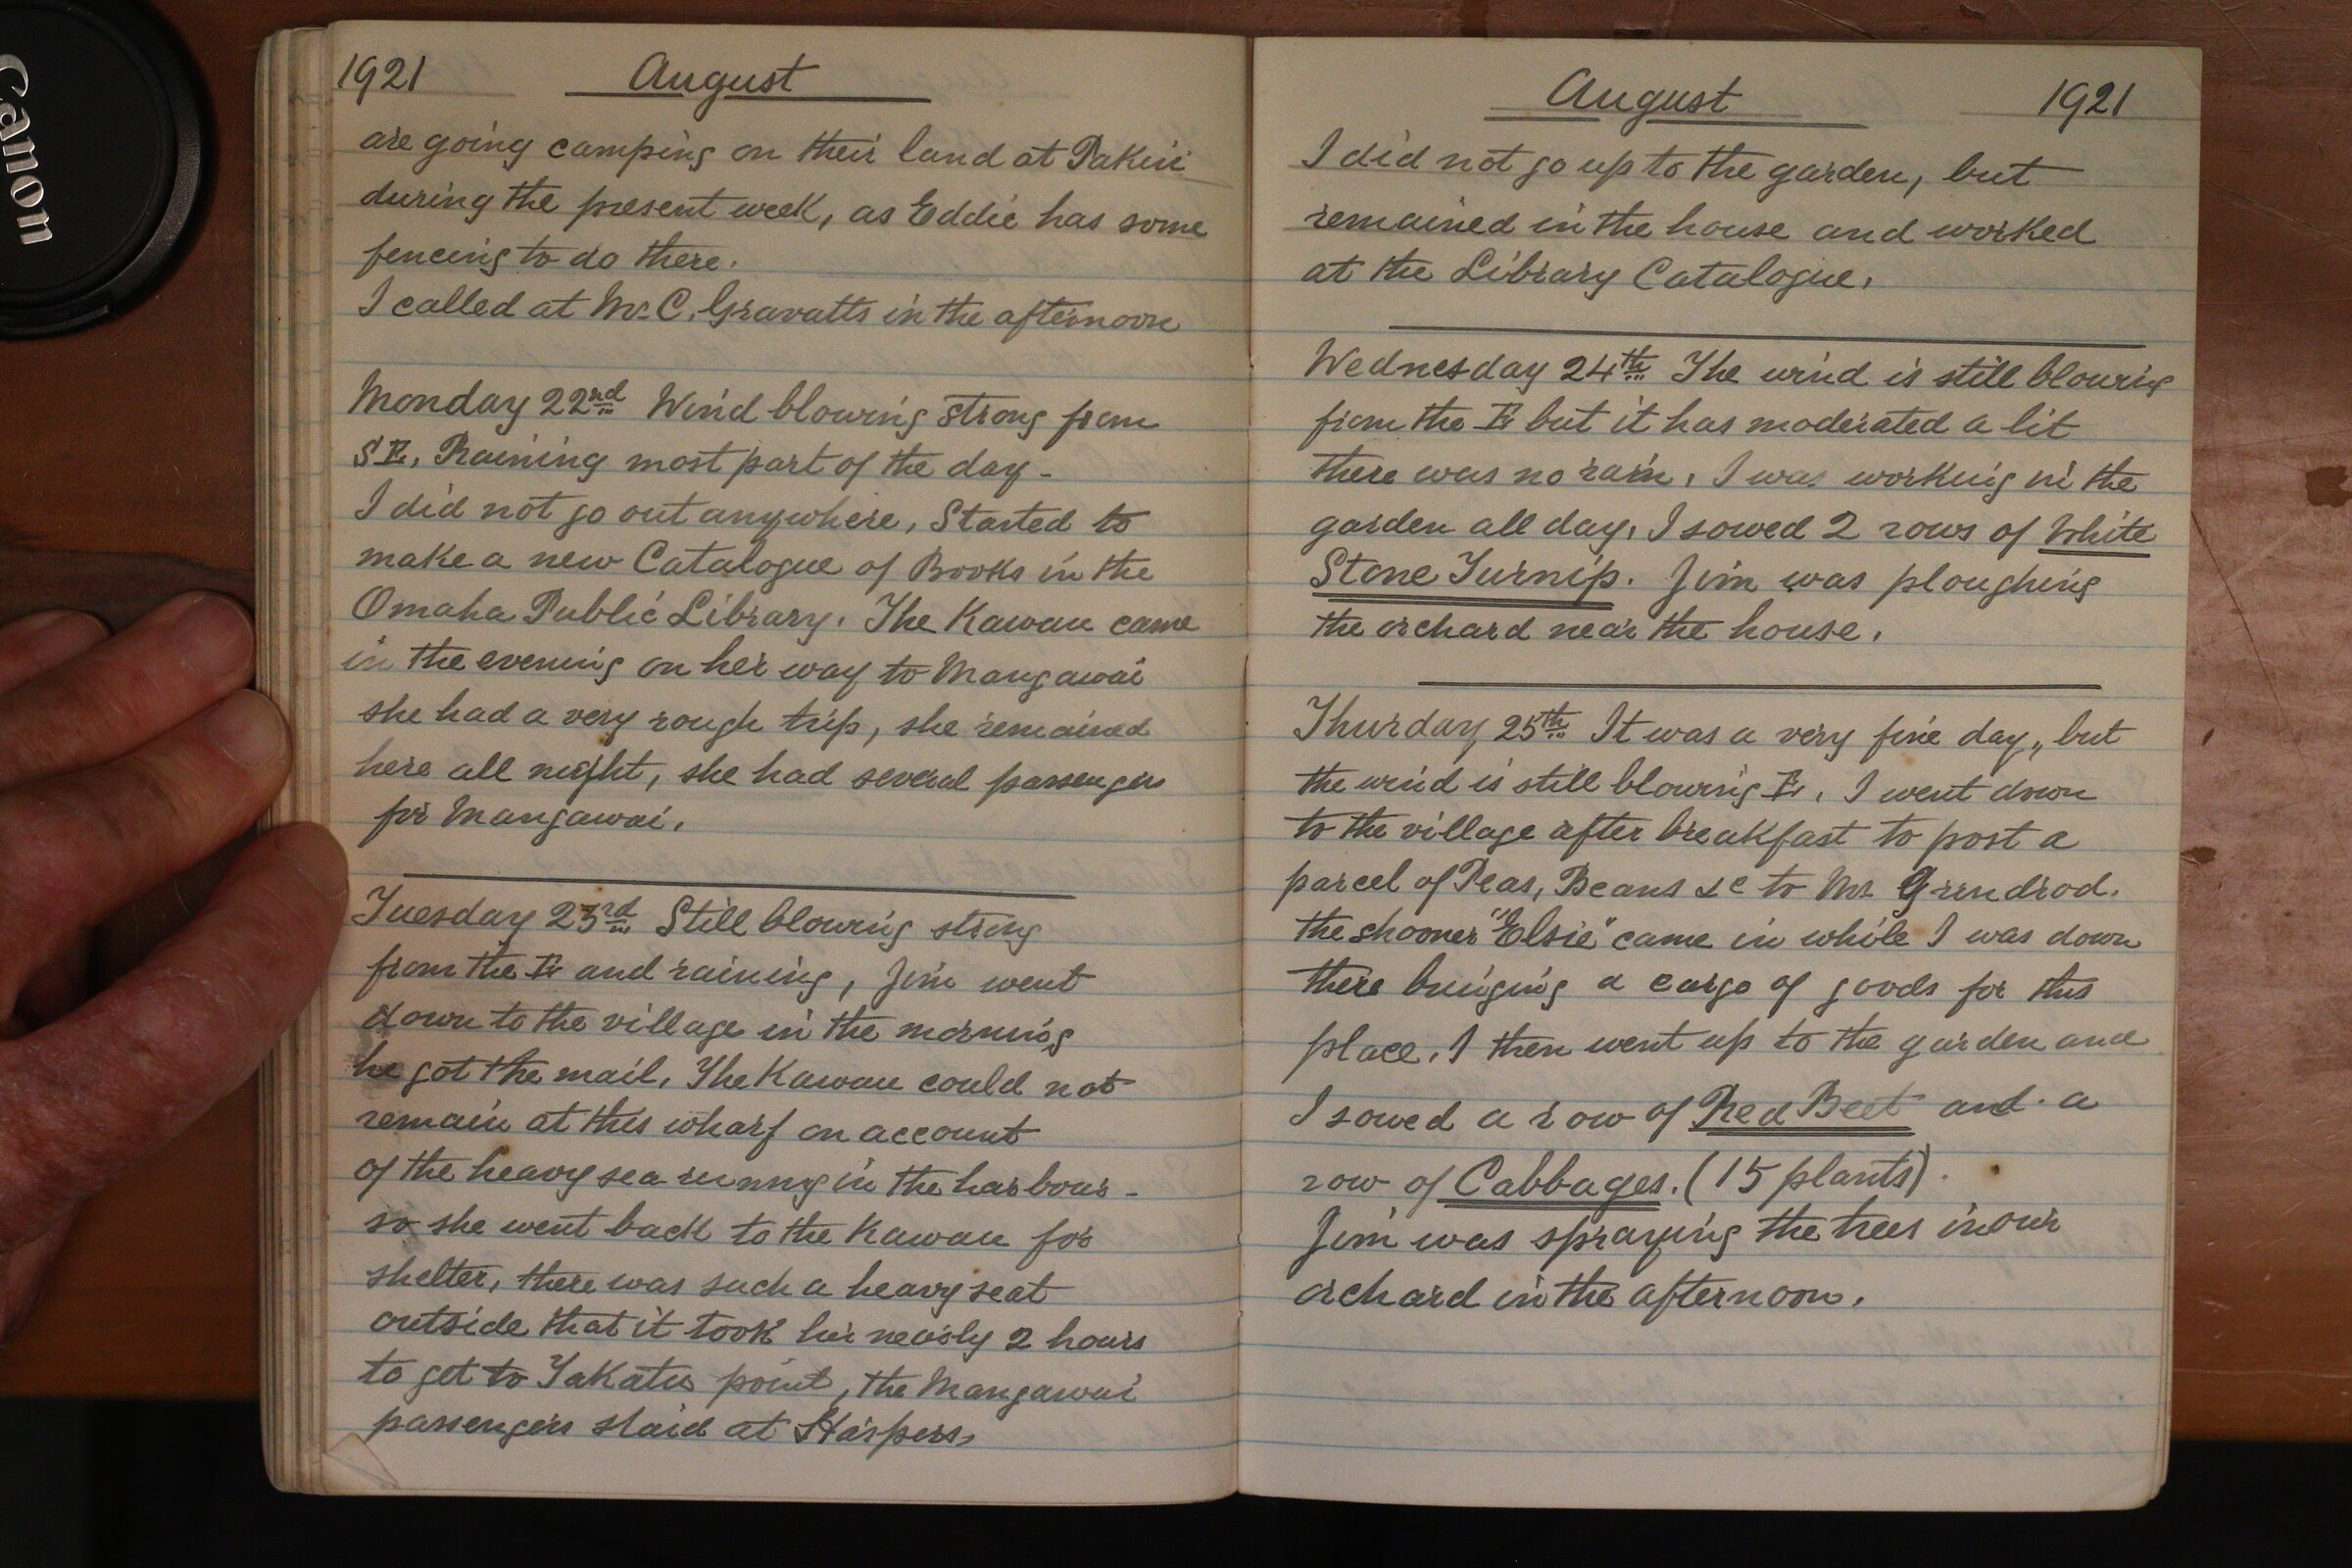 Canon
1921 August
are going camping on their land at Pakiri
during the present week, as Eddie has some
fencing to do there.
I called at Mr C. Gravatts in the afternoon
Monday 22nd Wind blowing strong from
SE, Raining most part of the day -
I did not go out anywhere, Started to
make a new Catalogue of Books in the
Omaha Public Library. The Kawau came
in the evening on her way to Mangawai
she had a very rough trip, she remained
here all night, she had several passengers
for Mangawai.
Tuesday 23rd Still blowing strong
from the E and raining, Jim went
down to the village in the morning
he got the mail. The Kawau could not
remain at this wharf on account
of the heavy sea running in the harbour -
so she went back to the Kawau for
shelter, there was such a heavy seat
outside that it took her nearly 2 hours
to get to Takatu point, the Mangawai
passengers staid at Harpers,
August 1921
I did not go up to the garden, but
remained in the house and worked
at the Library Catalogue.
Wednesday 24th The wind is still blowing
from the E but it has moderated a bit
there was no rain, I was working in the
garden all day, I sowed 2 rows of White
Stone Turnip. Jim was ploughing
the orchard near the house.
Thurday 25th It was a very fine day, but
the wind is still blowing E, I went down
to the village after breakfast to post a
parcel of Peas, Beans &c to Mr Grindrod.
the shooner "Elsie" came in while I was down
there bringing a cargo of goods for this
place, I then went up to the garden and
I sowed a row of Red Beet and a
row of Cabbages. (15 plants)
Jim was spraying the trees in our
orchard in the afternoon.